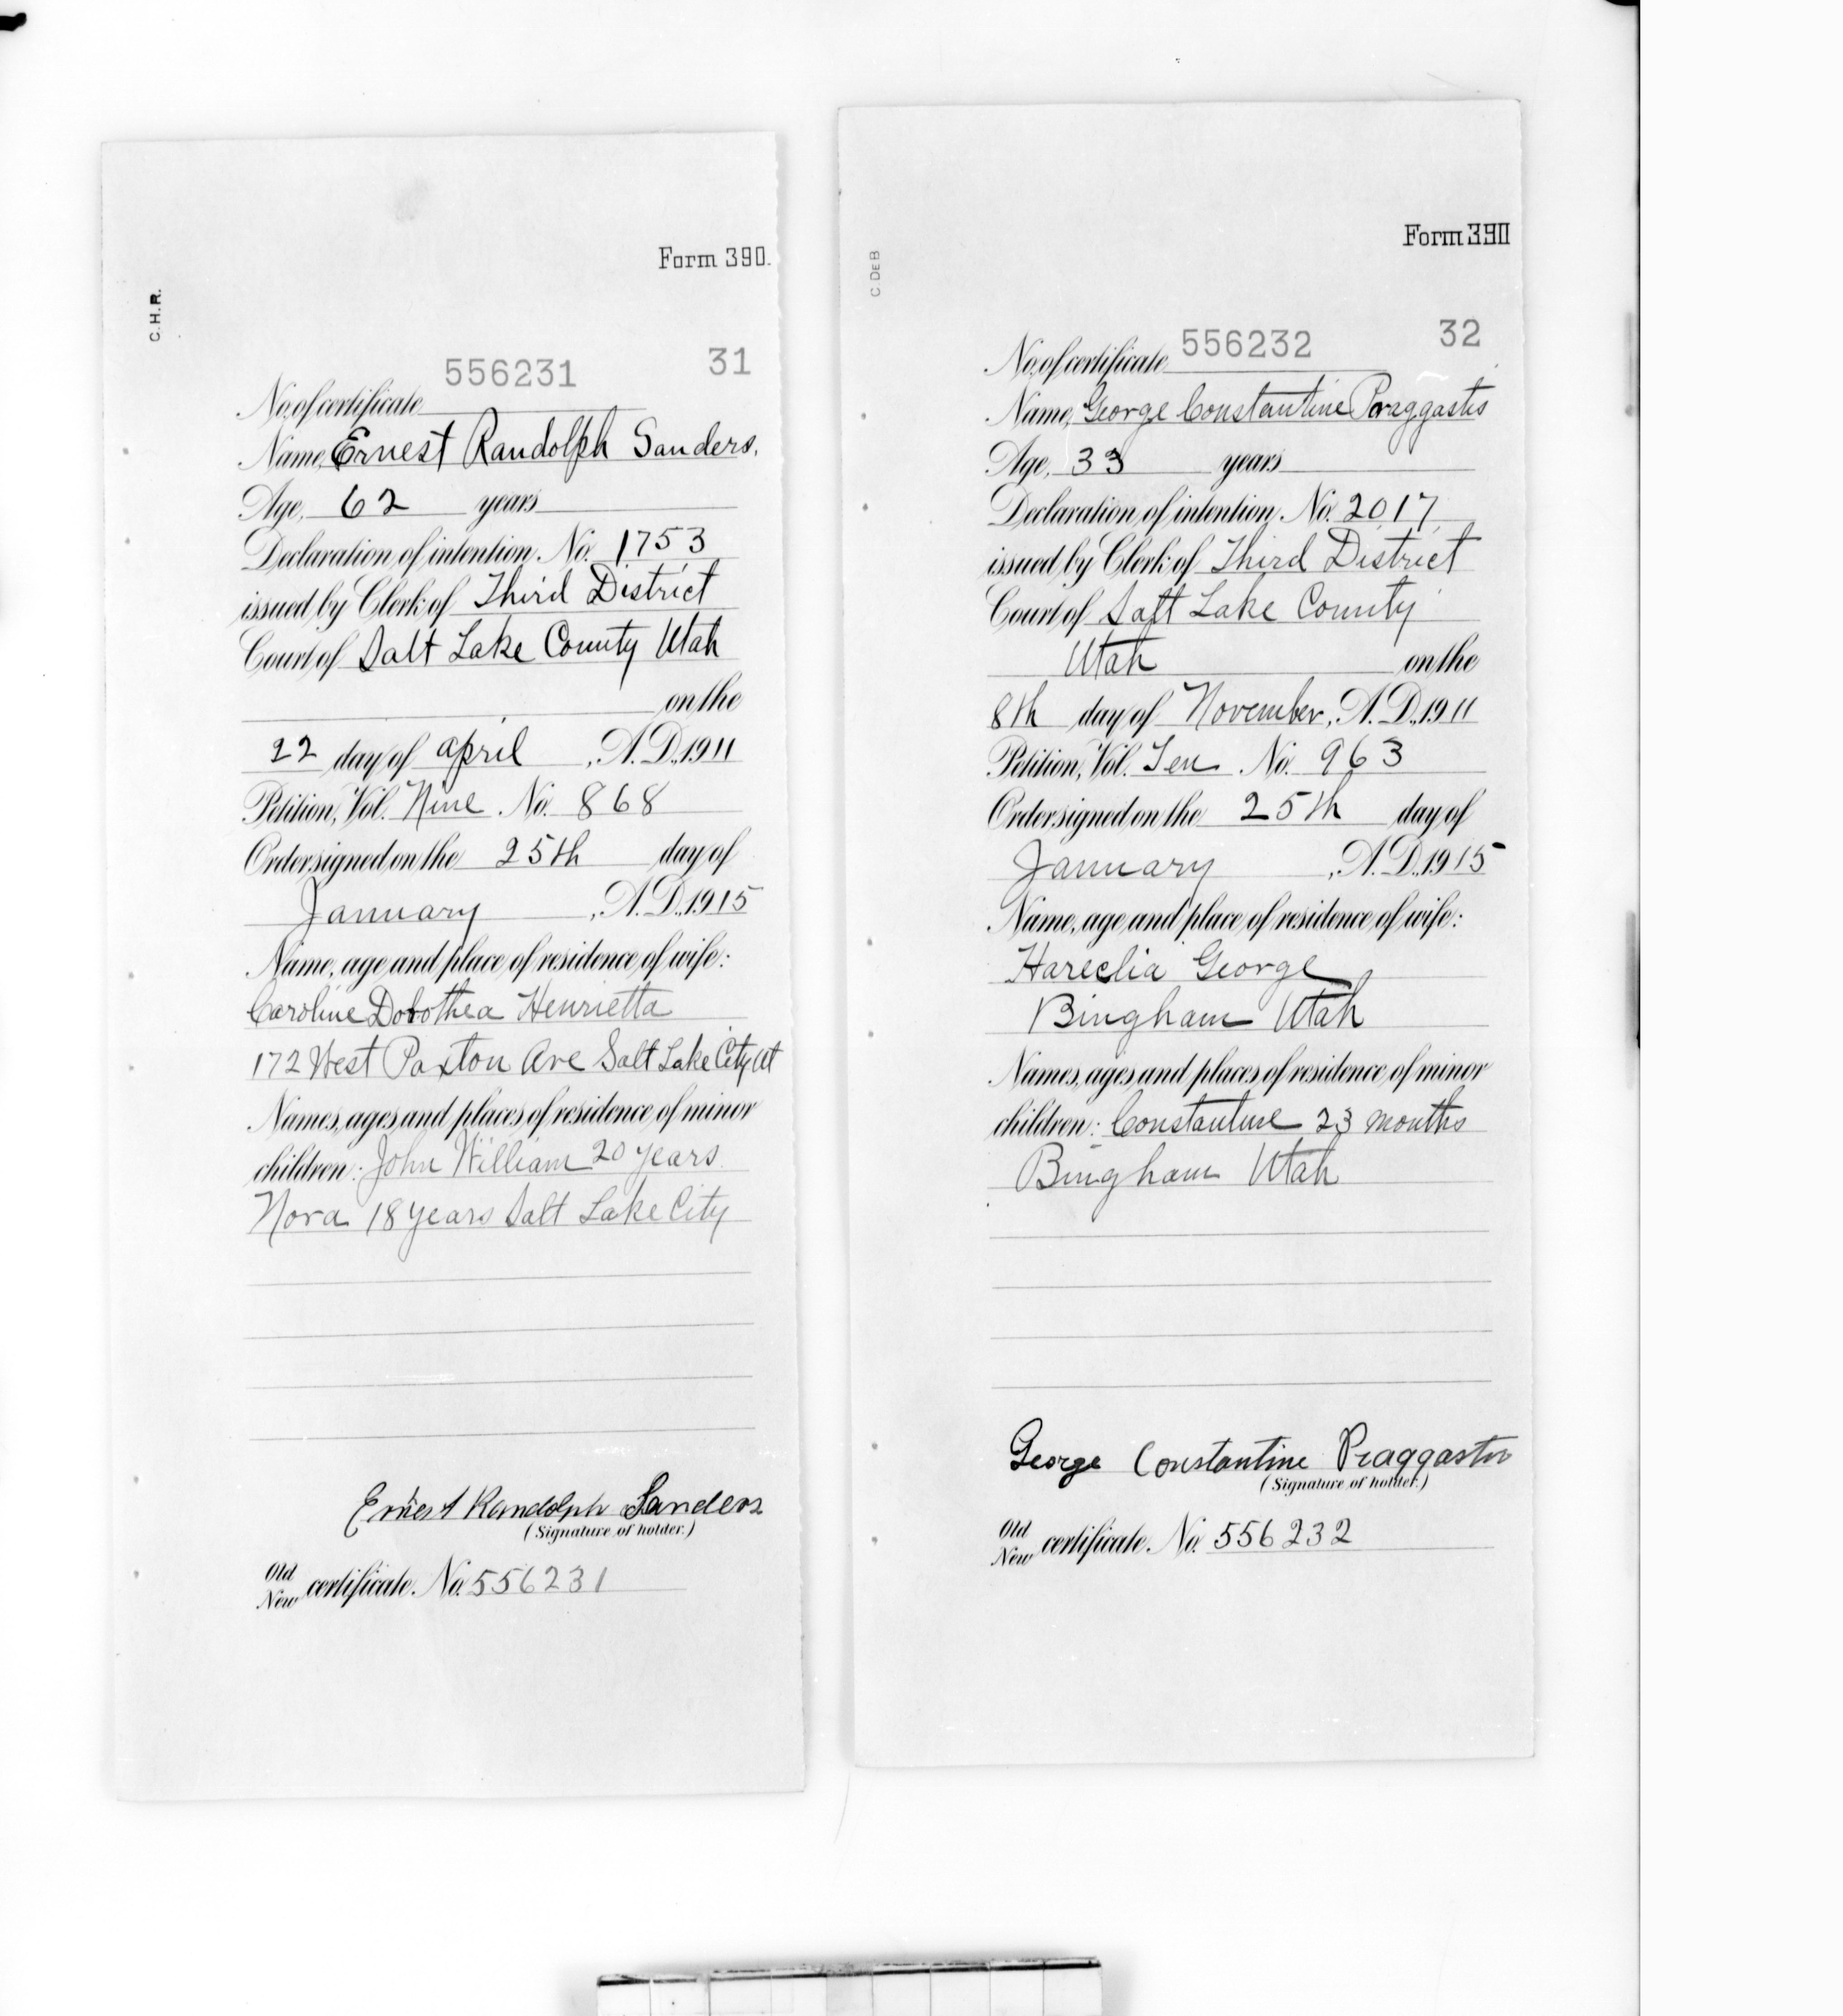 Form 390.
C.H.R.
556231 31
No. of certificate
Name, Ernest Randolph Sanders.
Age, 62 years
Declaration of intention, No. 1753
issued by Clerk of Third District
Court of Salt Lake County Utah
on the
22 day of april, A. D. 1911
Petition, Vol. Nine No. 868
Order signed on the 25th day of
January, A. D. 1915
Name, age and place of residence of wife:
Caroline Dorothea Henrietta
172 West Paxton Ave Salt Lake City Ut
Names, ages and places of residence of minor
children: John William 20 years
Nora 18 years Salt Lake City
Ernest Randolph Sanders
(Signature of holder.)
Old
New certificate. No. 556231
Form 390
C DEB
556232 32
No. of certificate
Name, George Constantine Praggastis
Age, 33 years
Declaration of intention, No. 2017
issued by Clerk of Third District
Court of Salt Lake County
Utah on the
8th day of November, A. D. 1911
Petition, Vol. Ten No. 963
Order signed on the 25th day of
January, A. D. 1915
Name, age and place of residence of wife:
Hareclia George
Bingham Utah
Names, ages and places of residence of minor
children: Constantine 23 months
Bingham Utah
George Constantine Praggastis
(Signature of holder.)
Old
New certificate. No. 556232